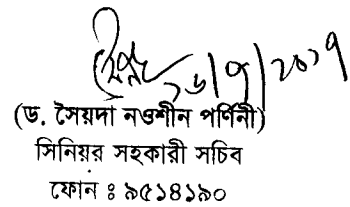 ২৬/৭/২০১৭
(ড. সৈয়দা নওশীন পর্ণিনী)
সিনিয়র সহকারী সচিব
ফোন ঃ ৯৫১৪১৯০